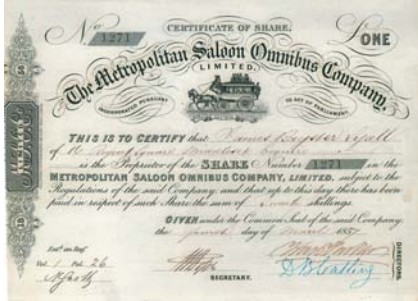 CERTIFICATE OF SHARE.
No 1271 £ONE
The Metropolitan Saloon Omnibus Company,
LIMITED.
INCORPORATED PURSUANT TO ACT OF PARLIAMENT.
THIS IS TO CERTIFY that James
of Square Middlesex Esquire
is the Proprietor of the SHARE Number 1271 in the
METROPOLITAN SALOON OMNIBUS COMPANY, LIMITED, subject to the
Regulations of the said Company; and that up to this day there has been
paid in respect of such Share the sum of shillings.
GIVEN under the Common Seal of the said Company,
the day of March 1857
Vol. 1 Fol. 26
SECRETARY.
DIRECTORS.